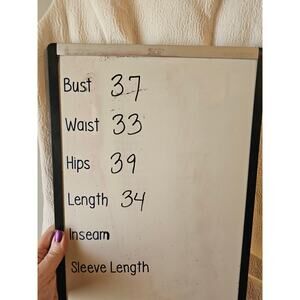 Bust 37
Waist 33
Hips 39
Length 34
Inseam
Sleeve Length